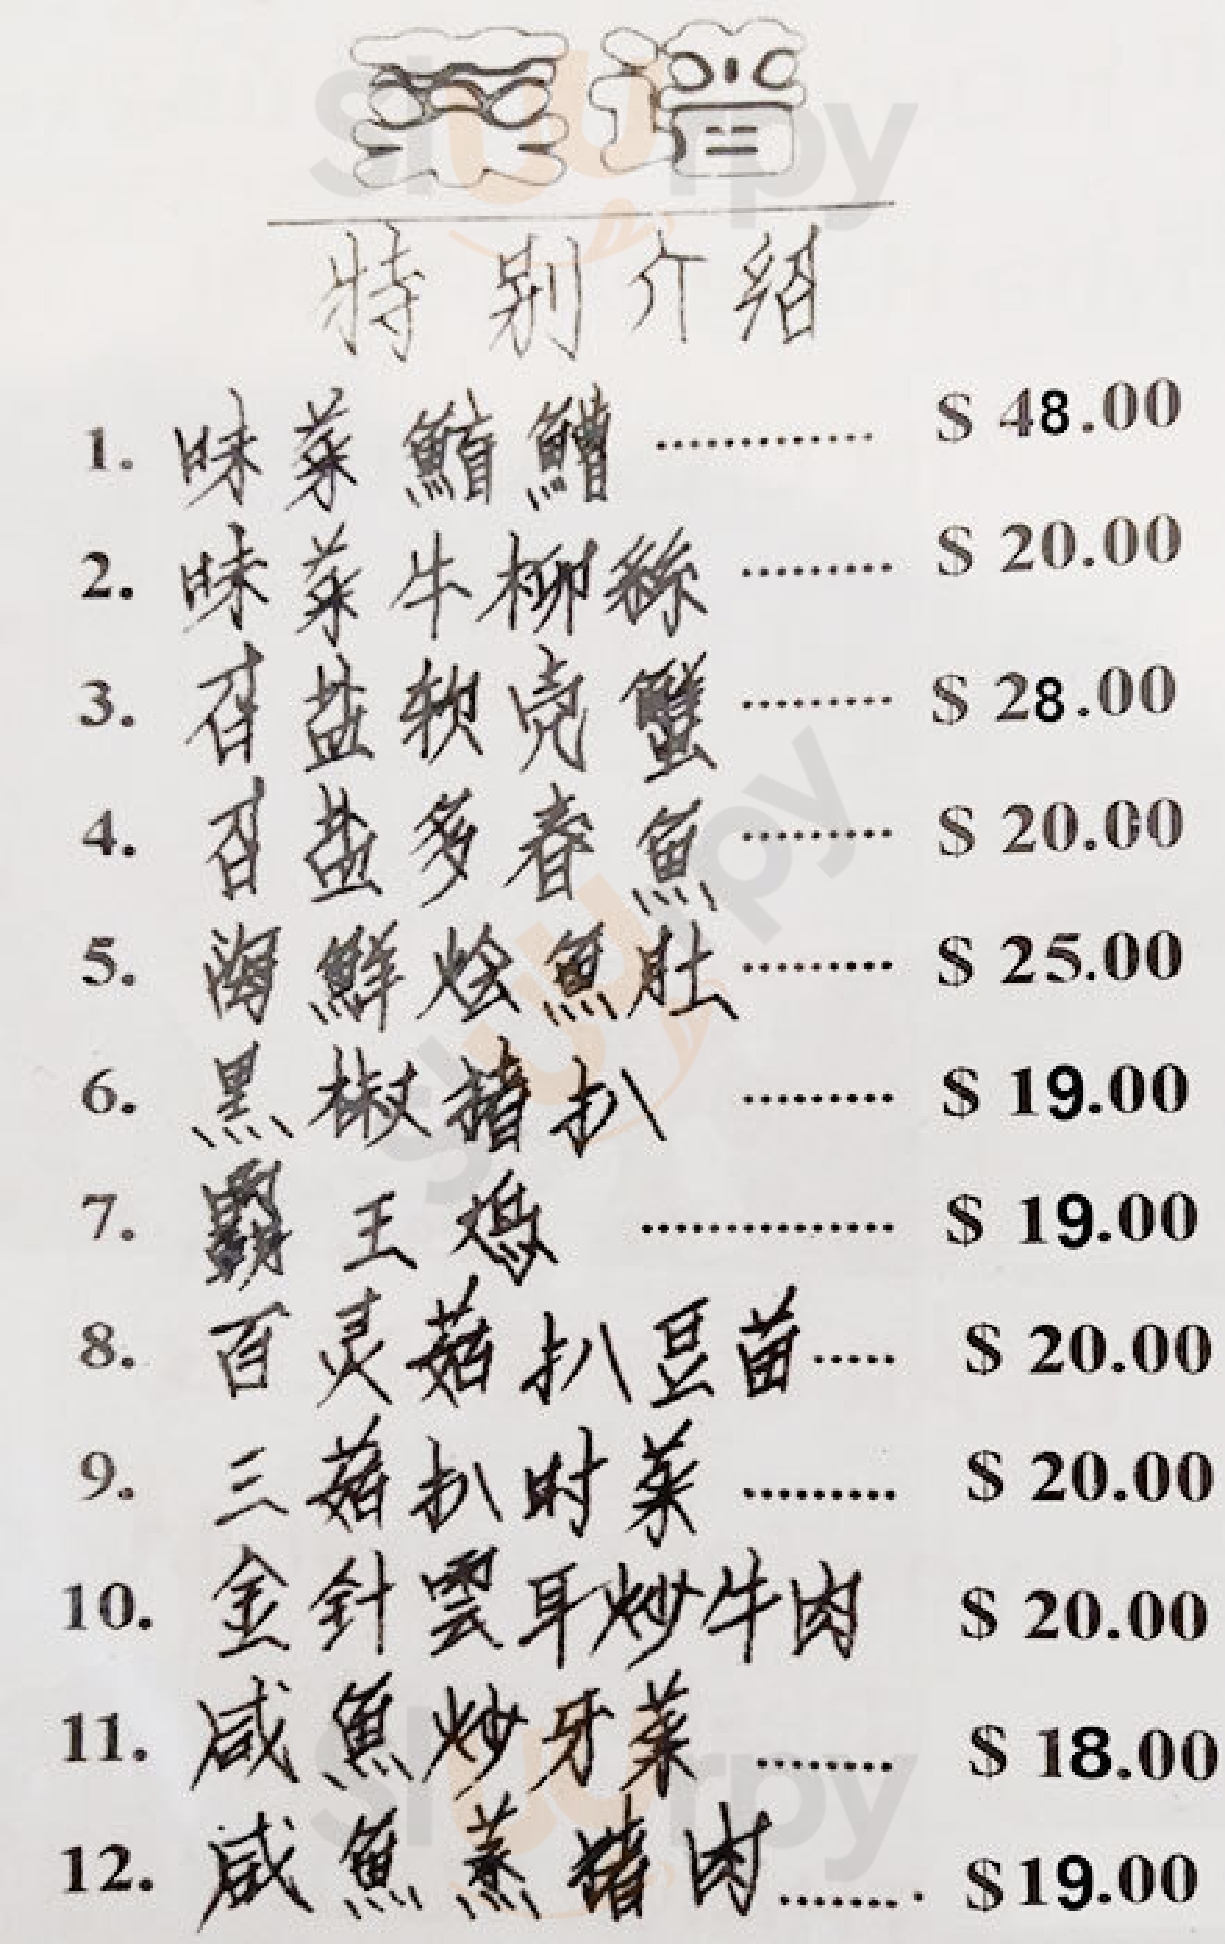 菜谱
特别介紹
1. 味菜鰽鰽 ............... $ 48.00
2. 味菜牛柳絲 ......... $ 20.00
3. 召盐软壳蟹 ......... $ 28.00
4. 召盐多春魚 ......... $ 20.00
5. 海鮮烩魚肚 ......... $ 25.00
6. 黑椒猪扒 ......... $ 19.00
7. 霸王鸡 ............... $ 19.00
8. 百灵菇扒豆苗 ..... $ 20.00
9. 三菇扒时菜 ......... $ 20.00
10. 金針雲耳炒牛肉 $ 20.00
11. 咸魚炒牙菜 ........ $ 18.00
12. 咸魚蒸猪肉 ......... $ 19.00